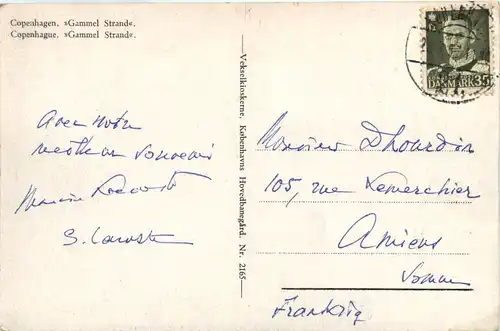 Copenhagen. »Gammel Strand«.
Copenhague. »Gammel Strand«.
Avec notre
meilleur souvenir
Vekselkioskerne, Københavns Hovedbanegård. Nr. 2165
DANMARK 35
Monsieur Dhourdin
105, rue Lemerchier
Amiens
Somme
Frankrig